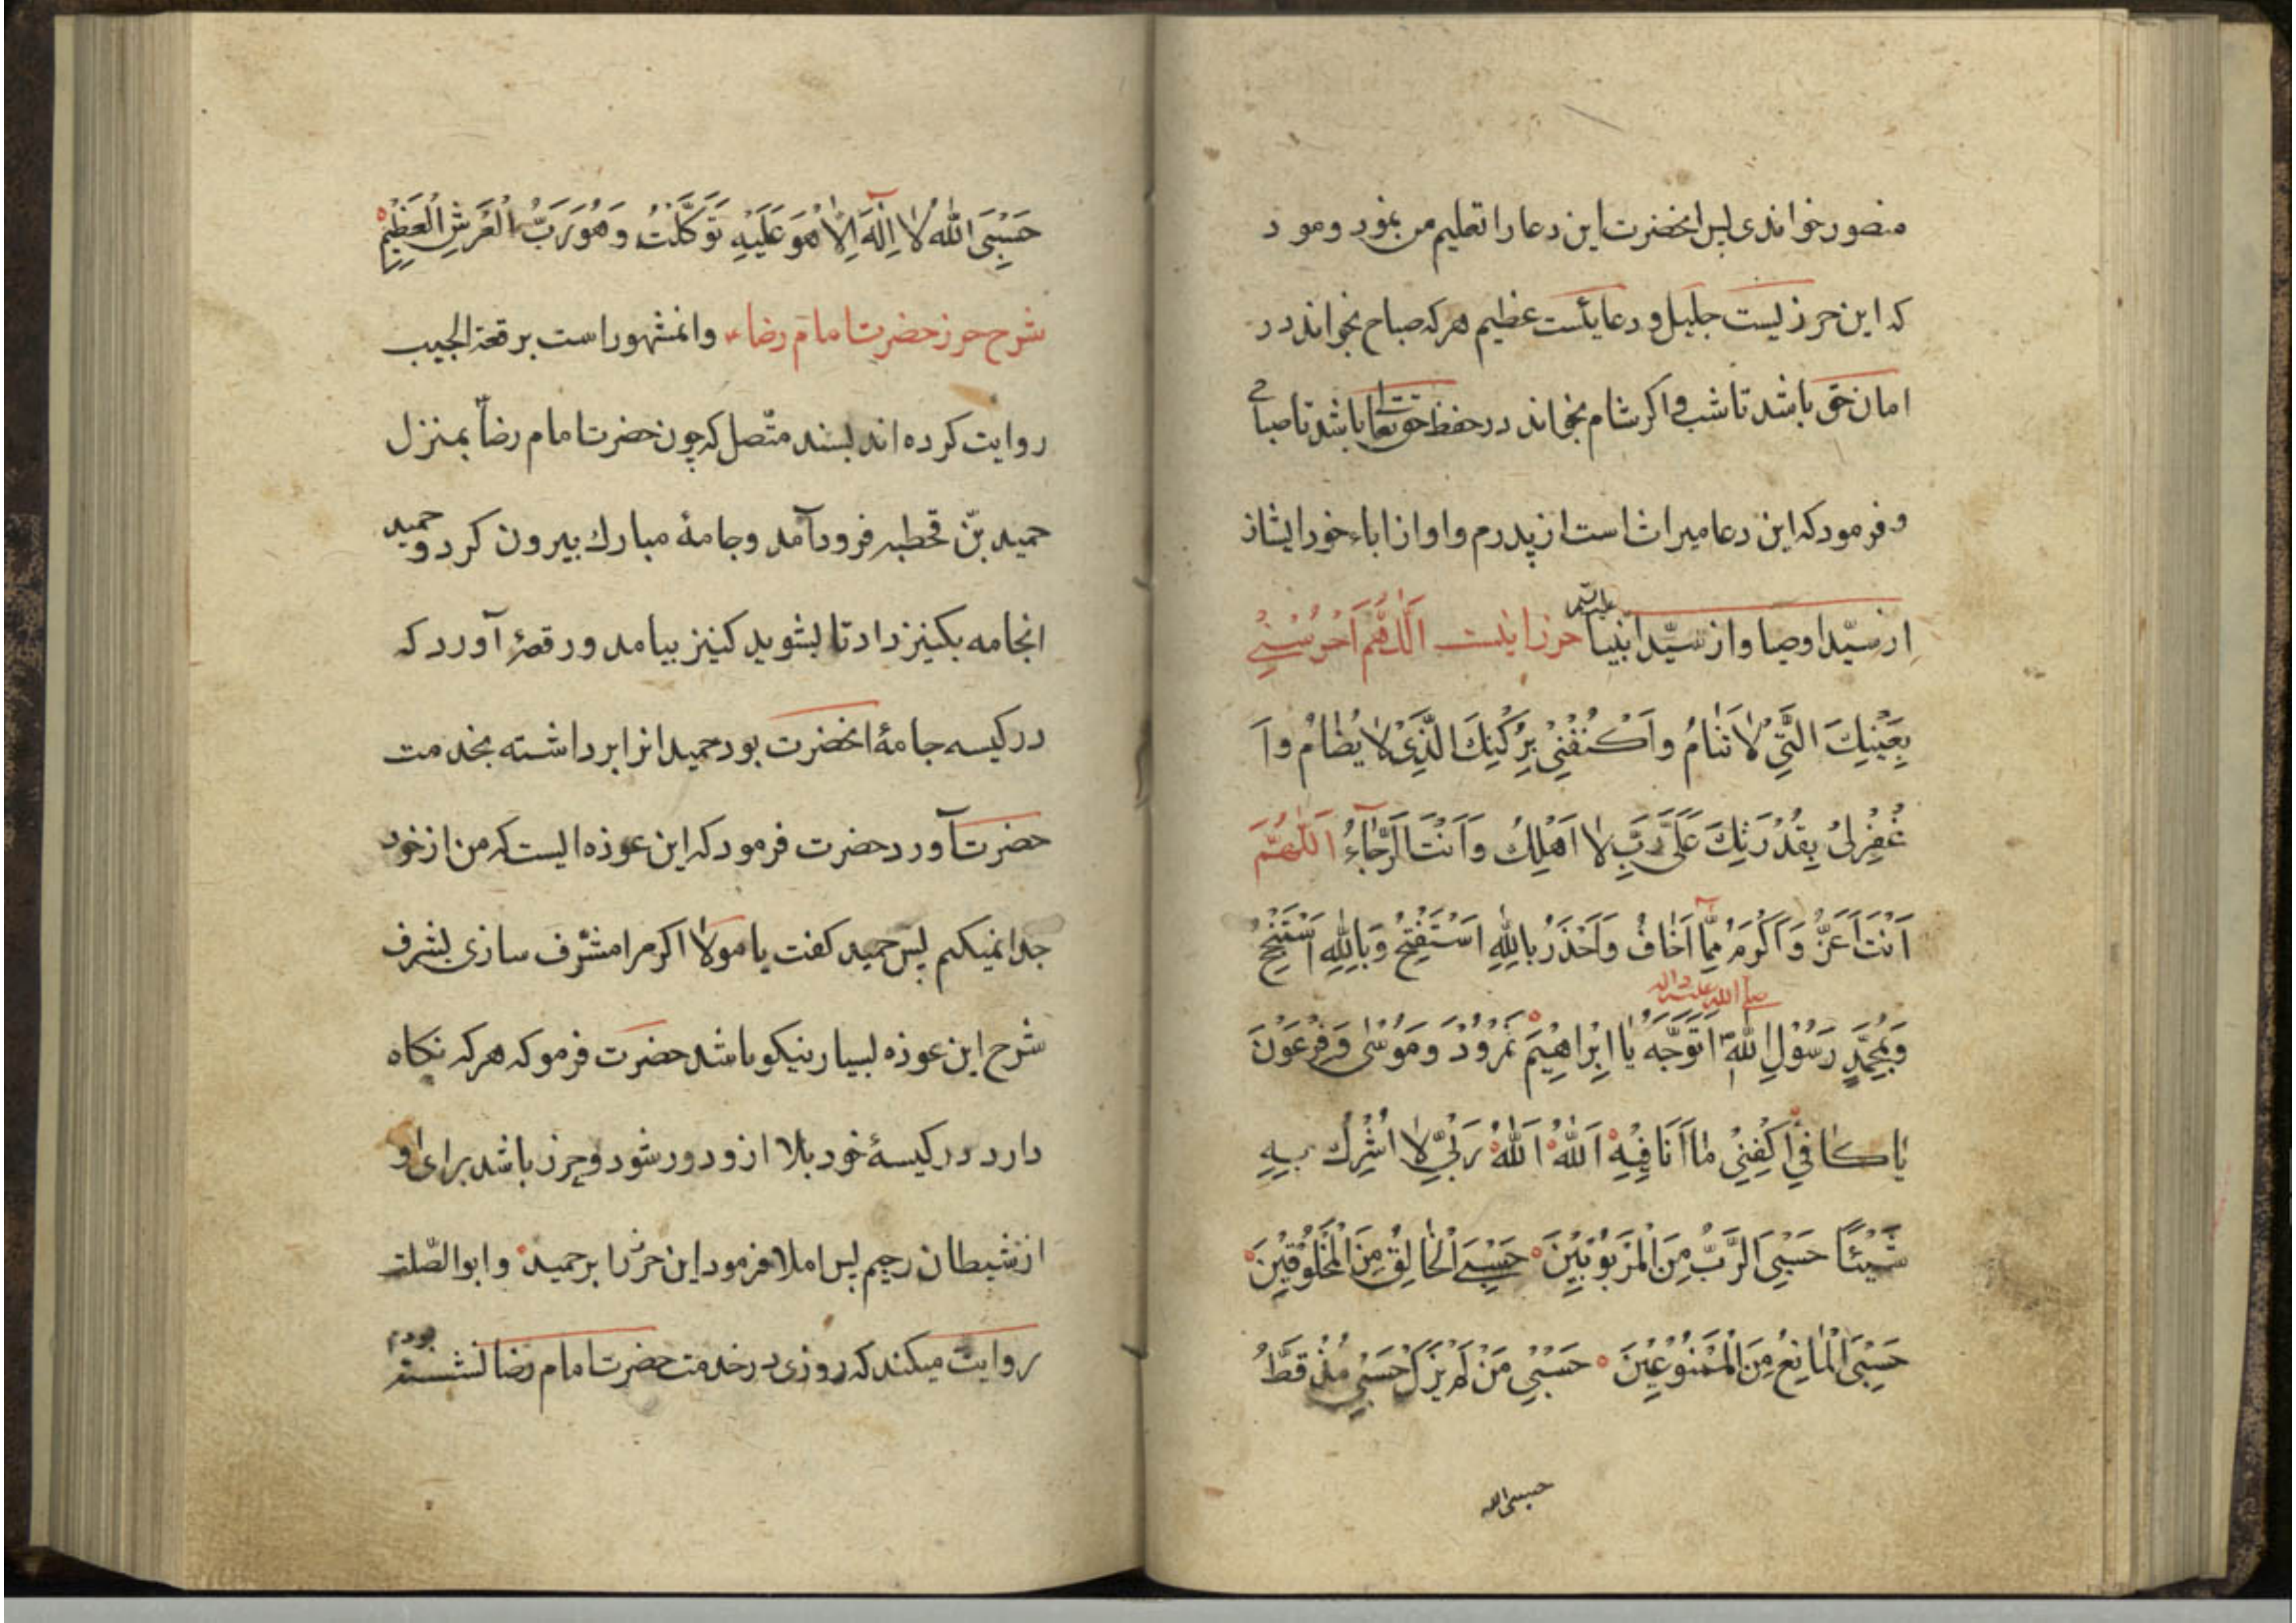 منصور خواندی پس انحضرت این دعا را تعلیم من نمود و مود
که این حرزیست جلیل و دعایئست عظیم هرکه صباح بخواند در
امان حق باشد تا شب و اکر شام بخواند در حفظ حقتعا باشد تا صباح
و فرمود که این دعا میراث است از پدرم و او از اباء خود ایشان
از سیّد اوصیا و از سیّد انبیا علیهم حرز اینست اَللّٰهُمَّ اَحْرُسْنِیْ
بِعَیْنِكَ الَّتِیْ لَا تَنَامُ وَاَکْنُفْنِیْ بِرُکْنِكَ الَّذِیْ لَا یُضَامُ وَ اَ
غْفِرْلِیْ بِقُدْرَتِكَ عَلَیَّ رَبِّ لَا اَهْلِكُ وَاَنْتَ الرَّجَآءُ اَللّٰهُمَّ
اَنْتَ اَعَزُّ وَ اَکْرَمُ مِمَّآ اَخَافُ وَ اَحْذَرُ بِاللّٰهِ اَسْتَفْتِحُ وَ بِاللّٰهِ اَسْتَنْجِحُ
وَ بِمُحَمَّدٍ رَسُوْلِ اللّٰهِ صلی الله علیه واله اَتَوَجَّهُ یَا اِبْرَاهِیْمَ نَمْرُوْدَ وَ مُوْسٰی وَ فِرْعَوْنَ
یَا کَافِیْ اَکْفِنِیْ مَا اَنَا فِیْهِ اَللّٰهُ اَللّٰهُ رَبِّیْ لَا اُشْرِكُ بِهِ
شَیْئًا حَسْبِیَ الرَّبُّ مِنَ الْمَرْبُوْبِیْنَ حَسْبِیَ الْخَالِقُ مِنَ الْمَخْلُوْقِیْنَ
حَسْبِیَ الْمَانِعُ مِنَ الْمَمْنُوْعِیْنَ حَسْبِیْ مَنْ لَمْ یَزَلْ حَسْبِیْ مُنْذُ قَطُّ
حسبی الله
حَسْبِیَ اللّٰهُ لَا اِلٰهَ اِلَّا هُوَ عَلَیْهِ تَوَکَّلْتُ وَ هُوَ رَبُّ الْعَرْشِ الْعَظِیْمِ
شرح حرز حضرت امام رضاء وانمشهور است برقعة الجیب
روایت کرده اند بسند متّصل که چون حضرت امام رضا بمنزل
حمید بن قحطبه فرود آمد و جامهٔ مبارك بیرون کرد و حمید
انجامه بکنیز داد تا بشوید کنیز بیامد و رقعهٔ آورد که
در کیسه جامهٔ انحضرت بود حمید انرا برداشته بخدمت
حضرت آورد حضرت فرمود که این عوذه ایست که من از خود
جدا نمیکنم پس حمید کفت یا مولا اکر مرا مشرّف سازی بشرف
شرح این عوذه بسیار نیکو باشد حضرت فرمو که هرکه نکاه
دارد در کیسهٔ خود بلا ازو دور شود و حرز باشد برای او
از شیطان رجیم پس املا فرمود این حرز را بر حمید و ابوالصّلت
روایت میکند که روزی در خدمت حضرت امام رضا نشسته بودم